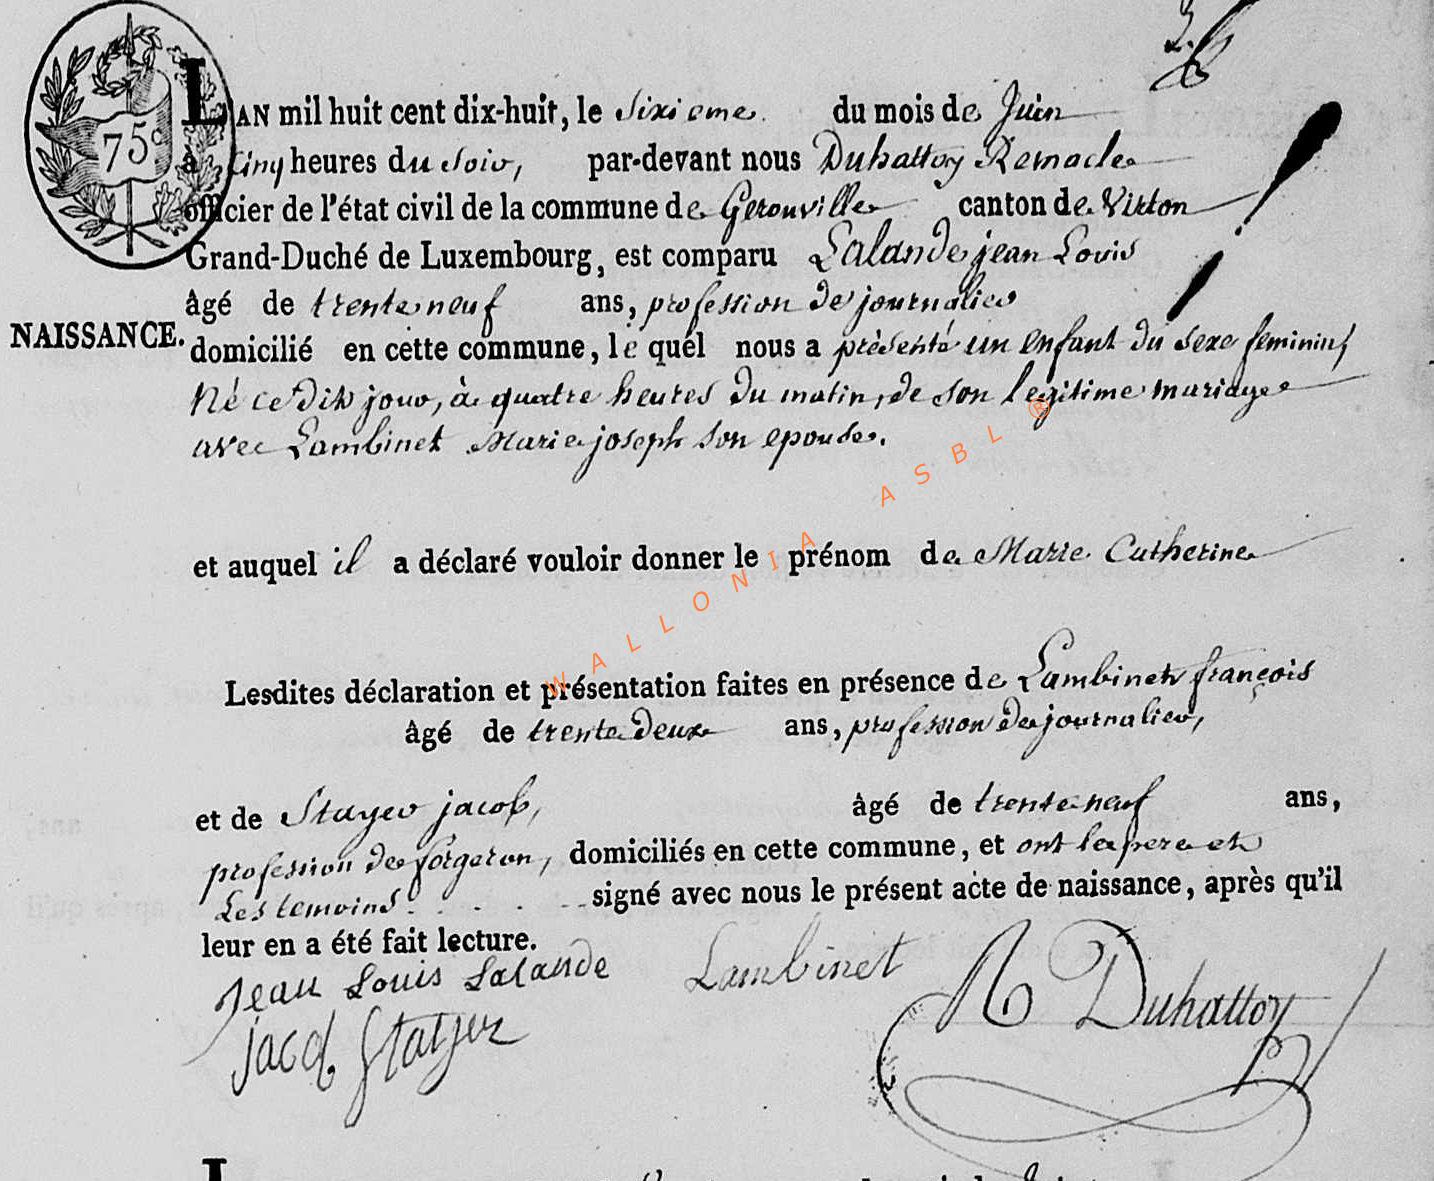 75c
L'AN mil huit cent dix-huit, le sixieme du mois de Juin
à cinq heures du soir, par-devant nous Duhattoy Remacle
officier de l'état civil de la commune de Gerouville canton de Virton
Grand-Duché de Luxembourg, est comparu Lalande jean Louis
âgé de trente neuf ans, profession de journalier
NAISSANCE. domicilié en cette commune, le quel nous a présenté un enfant du sexe feminin,
Né ce dit jour, à quatre heures du matin, de son legitime mariage
avec Lambinet Marie joseph son epouse.
et auquel il a déclaré vouloir donner le prénom de Marie Catherine
Lesdites déclaration et présentation faites en présence de Lambinet françois
âgé de trente deux ans, profession de journalier,
et de Stayer jacob, âgé de trente neuf ans,
profession de forgeron, domiciliés en cette commune, et ont le pere et
Les temoins signé avec nous le présent acte de naissance, après qu'il
leur en a été fait lecture.
Jean Louis Lalande Lambinet R Duhattoy
jacob Staÿer
WALLONIA ASBL ®